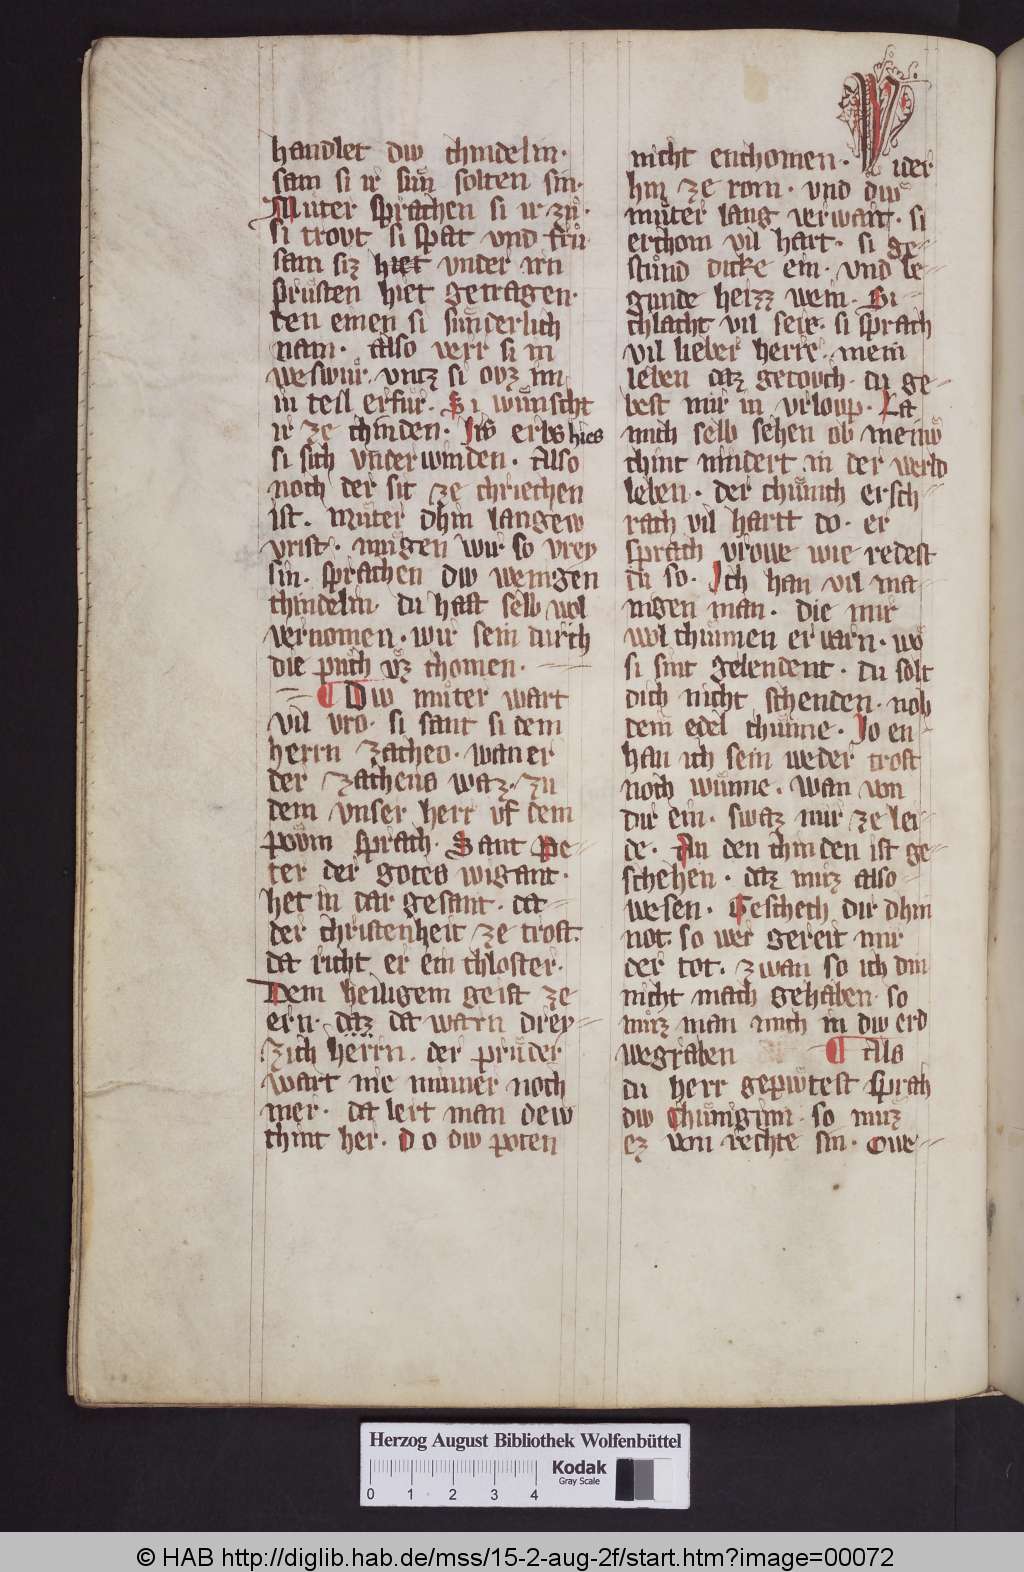 handlet diw chindelin·
sam si ir sun solten sin·
Muter sprachen si ir zů·
si trovt si spat vnd frů
sam siz hiet vnder irn
prusten hiet getragen·
den einen si sunderlich
nam· also verr si in
weswur· vntz si ovz im
in teil erfur· Si wunscht
ir ze chinden· Iris erbs hies
si sich vnderwinden· Also
noch der sit ze chriechen
ist· Muter dhin langew
vrist· mugen wir so vrey
sin· sprachen diw wenigen
chindelin· du hast selb wol
vernomen· wir sein durch
die pruch vz chomen·
¶ Diw muter wart
vil vro· si sant si dem
herrn Zacheo· wan er
der Zacheus waz· zu
dem vnser herr vf dem
povm sprach· Sant Pe-
ter der gotes wigant·
het in dar gesant· da-
der christenheit ze trost·
da richt er ein chloster·
Dem heiligem geist ze
ern· daz da warn drey-
zich herrn· der pruder
wart nie minner noch
mer· da lert man dew
chint her· Do diw poten
nicht enchomen· Wider
hin ze rom· vnd diw
muter lang verwart· si
erchom vil hart· si ge-
stund dicke ein· vnd be-
gunde heizz wein· Si
chlacht vil sere· si sprach
vil lieber herre· mein
leben daz getovch· du ge-
best mir in vrloup· La
mich selb sehen ob meinw
chint nindert in der werld
leben· der chunich ersch-
rach vil hartt do· er
sprach vrowe wie redest
du so· Ich han vil ma-
nigen man· die mir
wol chunnen ervarn· wo
si sint gelendent· du solt
dich nicht schenden· noh
dem edel chunne· Jo en-
han ich sein weder trost
noch wunne· wan von
dir ein· swaz mir ze lei-
de· An den chinden ist ge-
schehen· daz muz also
wesen· Geschech dir dhin
not· so wer gereit mir
der tot· zwan so ich din
nicht mach gehaben· so
muz man mich in diw erd
wegraben ¶ Als
du herr gepiwtest sprah
diw Chuniginn· so muz
ez von rechte sin· Owe-
Herzog August Bibliothek Wolfenbüttel
Kodak
Gray Scale
0 1 2 3 4
© HAB http://diglib.hab.de/mss/15-2-aug-2f/start.htm?image=00072